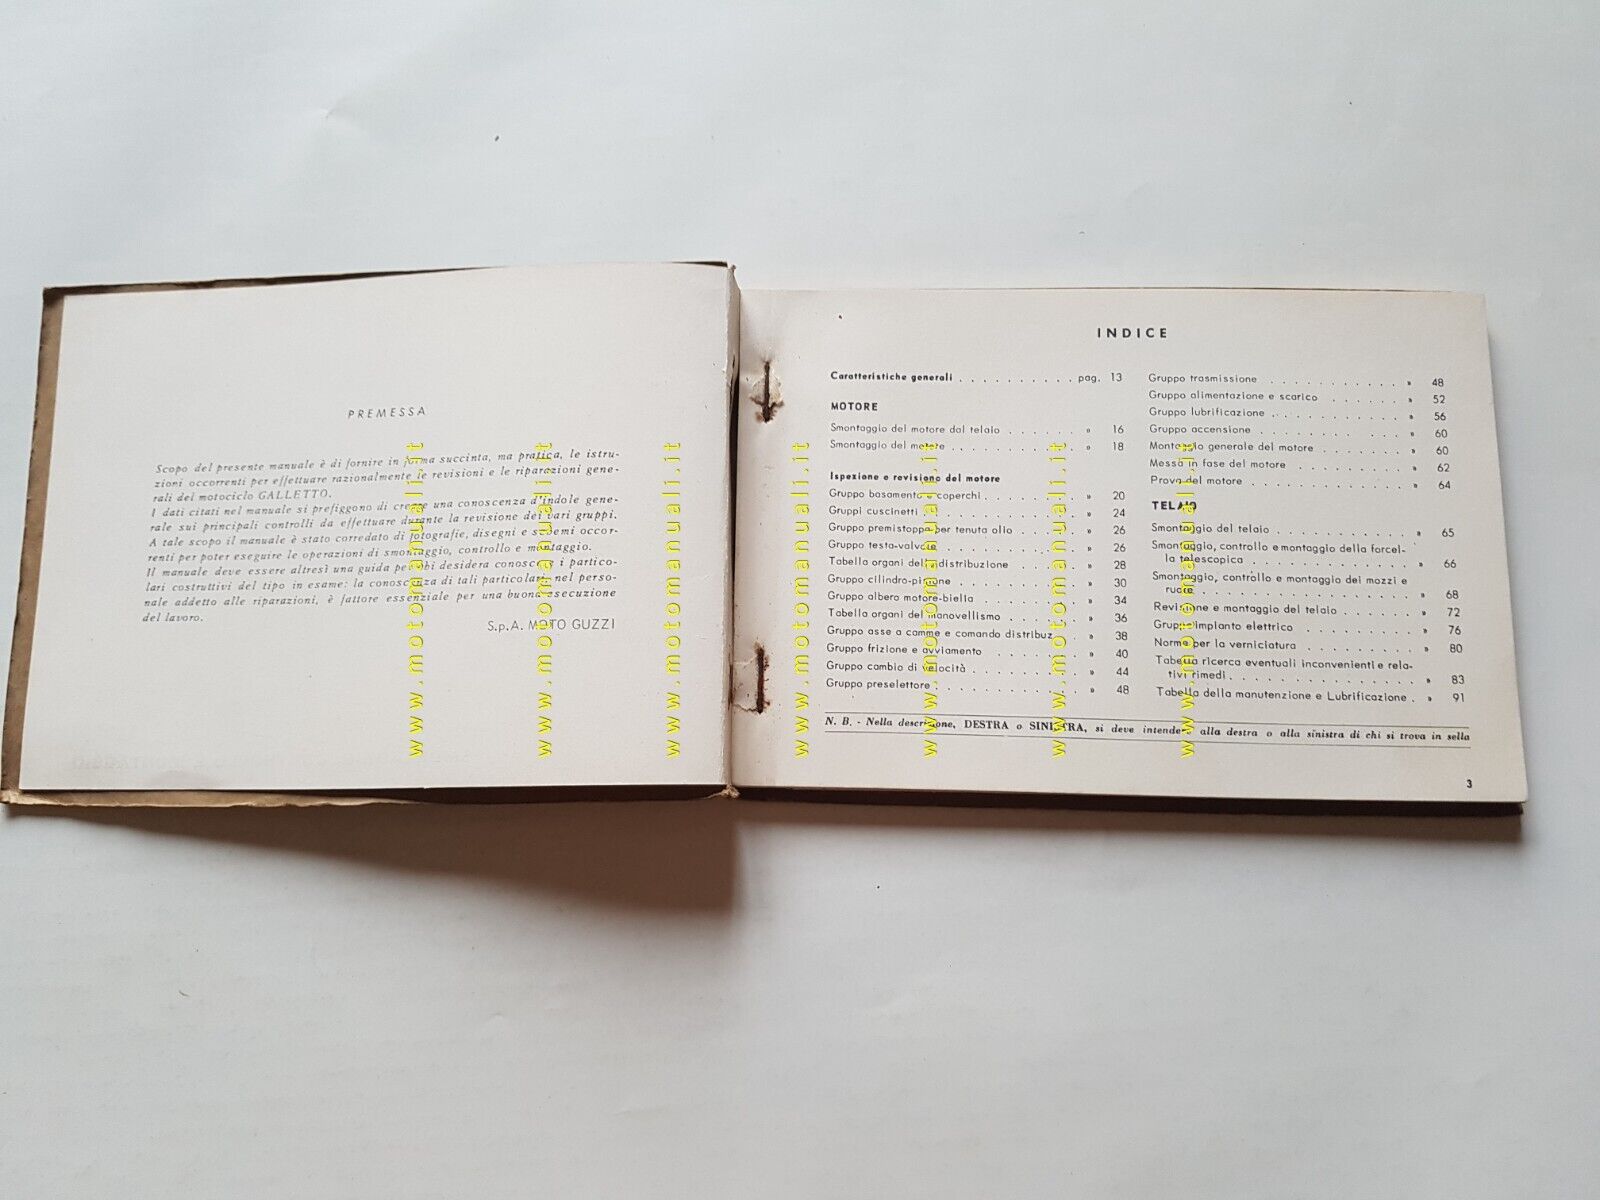 PREMESSA
Scopo del presente manuale è di fornire in forma succinta, ma pratica, le istru-
zioni occorrenti per effettuare razionalmente le revisioni e le riparazioni gene-
rali del motociclo GALLETTO.
I dati citati nel manuale si prefiggono di creare una conoscenza d'indole gene-
rale sui principali controlli da effettuare durante la revisione dei vari gruppi.
A tale scopo il manuale è stato corredato di fotografie, disegni e schemi occor-
renti per poter eseguire le operazioni di smontaggio, controllo e montaggio.
Il manuale deve essere altresì una guida per chi desidera conoscere i partico-
lari costruttivi del tipo in esame: la conoscenza di tali particolari, nel perso-
nale addetto alle riparazioni, è fattore essenziale per una buona esecuzione
del lavoro.
S.p.A. MOTO GUZZI
INDICE
Caratteristiche generali . . . . . . . . . . pag. 13
MOTORE
Smontaggio del motore dal telaio . . . . . . » 16
Smontaggio del motore . . . . . . . . . . » 18
Ispezione e revisione del motore
Gruppo basamento e coperchi . . . . . . . . » 20
Gruppi cuscinetti . . . . . . . . . . . . » 24
Gruppo premistoppa per tenuta olio . . . . . » 26
Gruppo testa-valvole . . . . . . . . . . . » 26
Tabella organi della distribuzione . . . . . . » 28
Gruppo cilindro-pistone . . . . . . . . . . » 30
Gruppo albero motore-biella . . . . . . . . » 34
Tabella organi del manovellismo . . . . . . » 36
Gruppo asse a camme e comando distribuz. . . » 38
Gruppo frizione e avviamento . . . . . . . » 40
Gruppo cambio di velocità . . . . . . . . . » 44
Gruppo preselettore . . . . . . . . . . . » 48
Gruppo trasmissione . . . . . . . . . . . » 48
Gruppo alimentazione e scarico . . . . . . » 52
Gruppo lubrificazione . . . . . . . . . . . » 56
Gruppo accensione . . . . . . . . . . . . » 60
Montaggio generale del motore . . . . . . . » 60
Messa in fase del motore . . . . . . . . . » 62
Prova del motore . . . . . . . . . . . . . » 64
TELAIO
Smontaggio del telaio . . . . . . . . . . . » 65
Smontaggio, controllo e montaggio della forcel-
la telescopica . . . . . . . . . . . . . » 66
Smontaggio, controllo e montaggio dei mozzi e
ruote . . . . . . . . . . . . . . . . » 68
Revisione e montaggio del telaio . . . . . . » 72
Gruppo impianto elettrico . . . . . . . . . » 76
Norme per la verniciatura . . . . . . . . . » 80
Tabella ricerca eventuali inconvenienti e rela-
tivi rimedi . . . . . . . . . . . . . . » 83
Tabella della manutenzione e Lubrificazione . » 91
N. B. - Nella descrizione, DESTRA o SINISTRA, si deve intendere alla destra o alla sinistra di chi si trova in sella
3
www.motomanuali.it
www.motomanuali.it
www.motomanuali.it
www.motomanuali.it
www.motomanuali.it
www.motomanuali.it
www.motomanuali.it